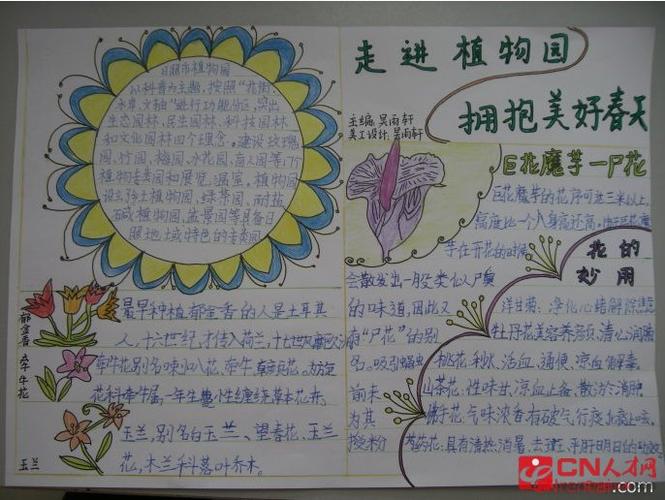 走进植物园
拥抱美好春天
主编:吴雨轩
美工设计:吴雨轩
日照市植物园
以科普为主题,按照“花街、
水岸、文轴”进行功能分区,突出
生态园林、民生园林、科技园林
和文化园林四个理念。建设玫瑰
园、竹园、梅园、水花园、盲人园等
植物专类园和展览温室。植物园
设立乡土植物园、绿茶园、耐盐
碱植物园、盆景园等具备日
照地域特色的专类园
巨花魔芋—尸花
巨花魔芋的花序可达三米以上,
高度比一个人身高还高。
芋在开花的时候
会散发出一股类似尸臭
的味道,因此又
有“尸花”的别
名。吸引
前来
为其
授粉
花的
妙用
洋甘菊:净化心绪解除焦虑
牡丹花美容养颜,清心润肺
桃花利水、活血、通便、凉血、解毒
山茶花,性味甘,凉血止备,散淤消肿
佛手花,气味浓香有破气行痰
具有清热、消暑、去斑、平肝明目的
郁金香
最早种植郁金香的人是土耳其
人,十六世纪,才传入荷兰,
牵牛花
牵牛花别名喇叭花、牵牛、
花科牵牛属,一年生蔓性缠绕草本花卉。
玉兰
玉兰,别名白玉兰、望春花、玉兰
花,木兰科落叶乔木。
CN人才网
.com